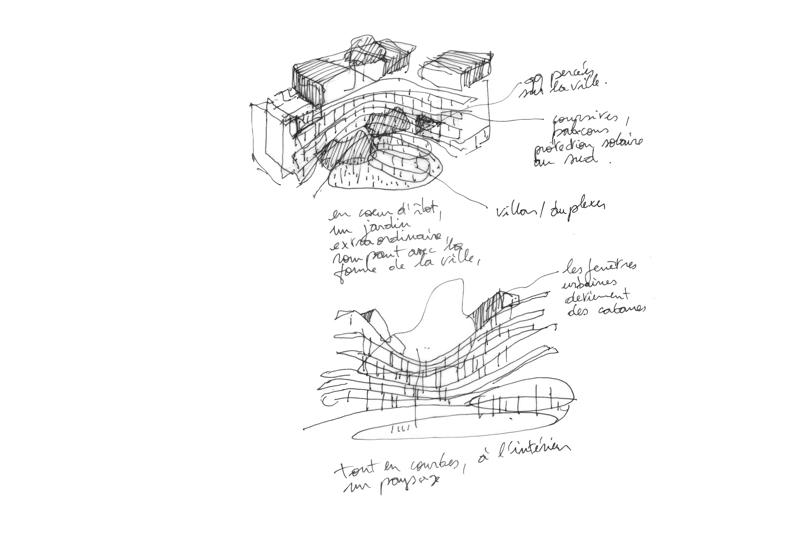 percées
sur la ville.
coursives,
balcons
protection solaire
au sud.
villas/duplexes
en coeur d'îlot,
un jardin
extraordinaire,
rompant avec la
forme de la ville,
les fenêtres
urbaines
deviennent
des cabanes
tout en courbes, à l'intérieur
un paysage